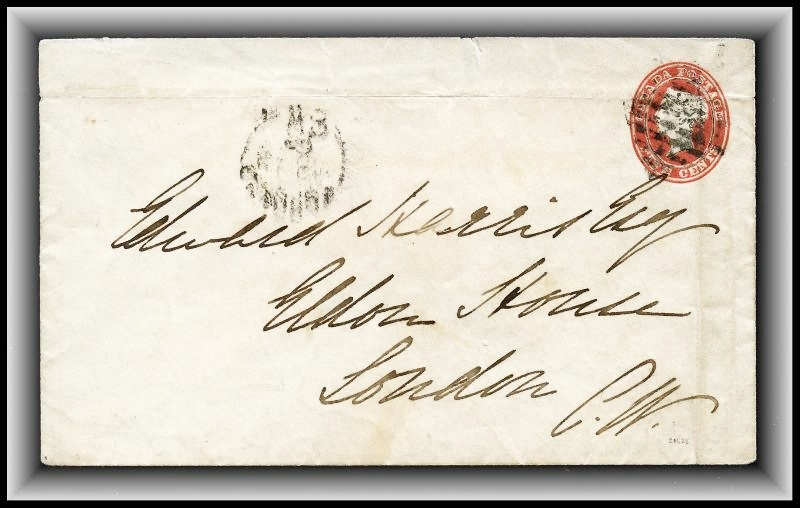 CANADA POSTAGE
CENTS
Edward Harris Esq
Eldon House
London
C.W.